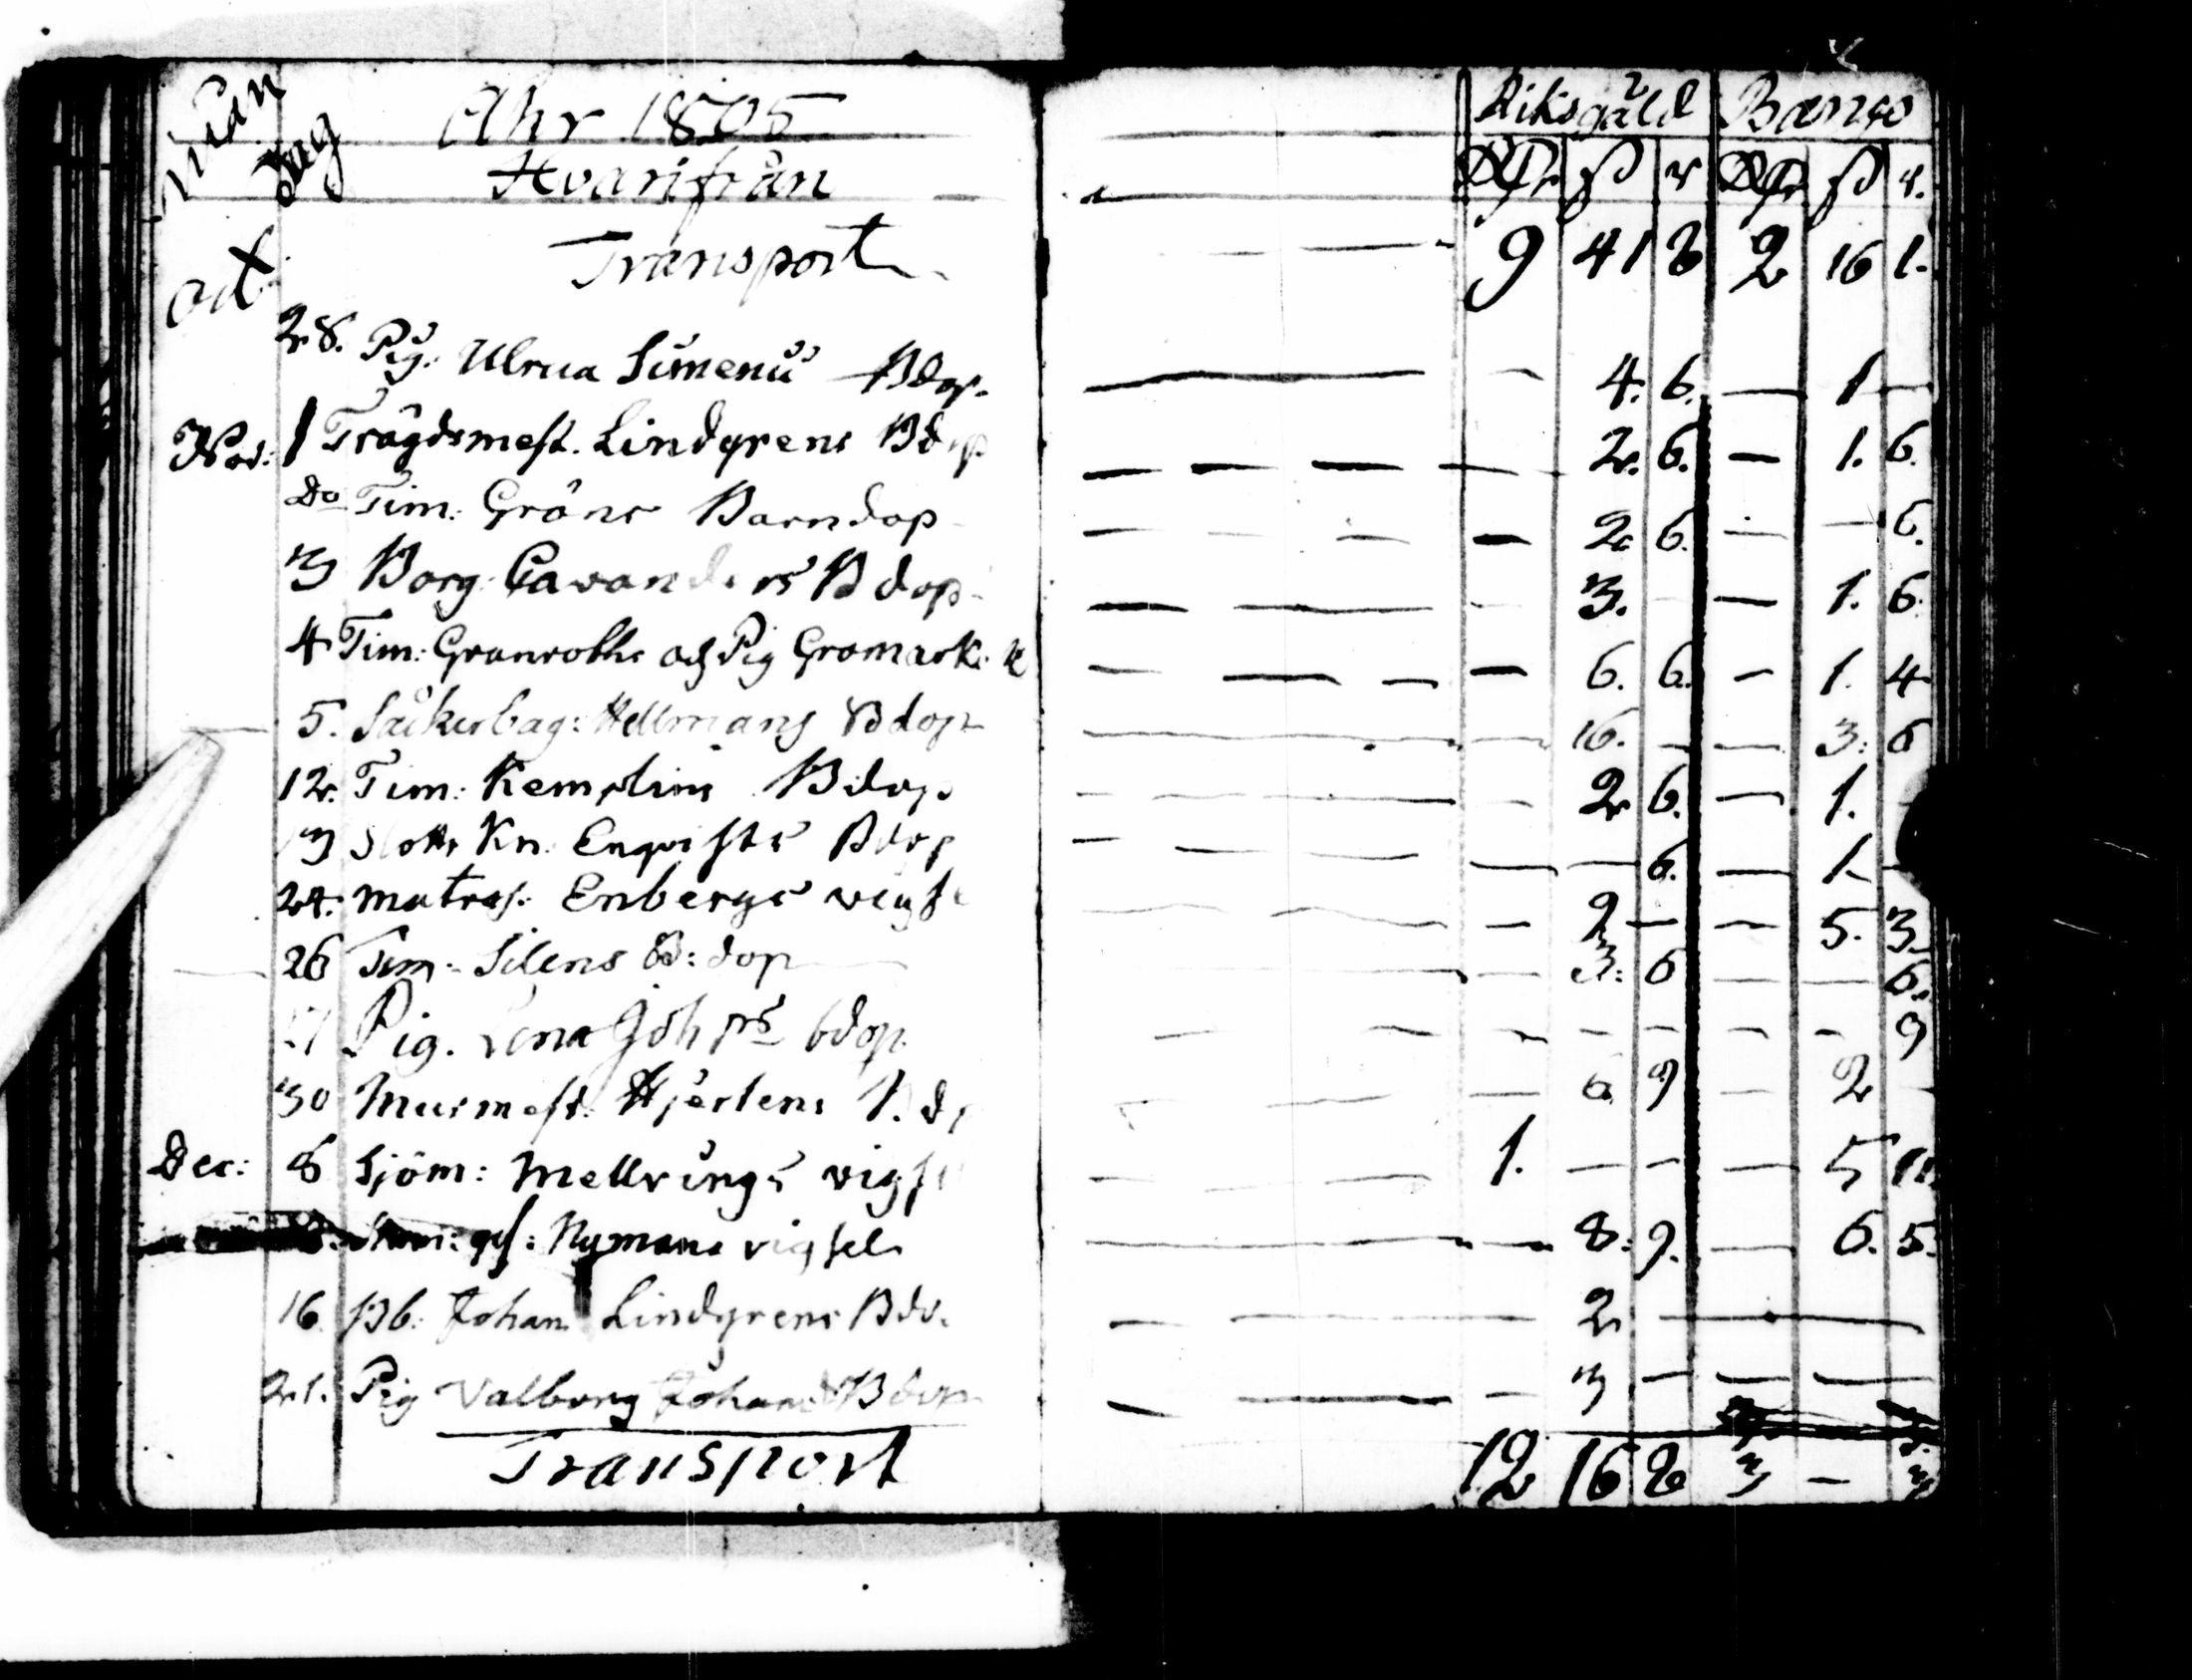 Mån Dag Ahr 1805 Riksgäld Banco
Hvarifrån RDr ß r RDr ß r.
Oct: Transport 9 41 8 2 16 1.
28. Pig: Ulrica Bdop. — 4. 6. — 1 —
Nov: 1 Trägdsmest. Lindgrens Bdop — 2. 6. — 1. 6.
Do Tim: Gröns Barndop — 2. 6. — — 6.
3 Borg: Bdop — 3. — — 1. 6.
4 Tim: Granroths och Pig Gromark. — 6. 6. — 1. 4
5. Såkerbag: Hellmans Bdop — 16. — — 3: 6
12. Tim: Kemplins Bdop — 2 6. — 1. —
13 Slotts Kn. Enqvists Bdop — — 6. — 1. —
24. Matros: Enbergs vigsel — 2 — — 5. 3.
26 Tim: Silens B: dop — 3: 6 — — 6.
27 Pig. Lena Joh bdop. — — — — — 9
30 Murmest. Hjertens B. d — 6 9 — 2 —
Dec: 8 Sjöm: Mellrings vigsel 1. — — — 5 11
ges: Nymans vigsel — 8: 9. — 6. 5.
16. Bb: Johan Lindgrens Bdo. — 2 —
21. Pig Valborg Johans Bdop — 3 — — —
Transport 12 16 8 3 — 3